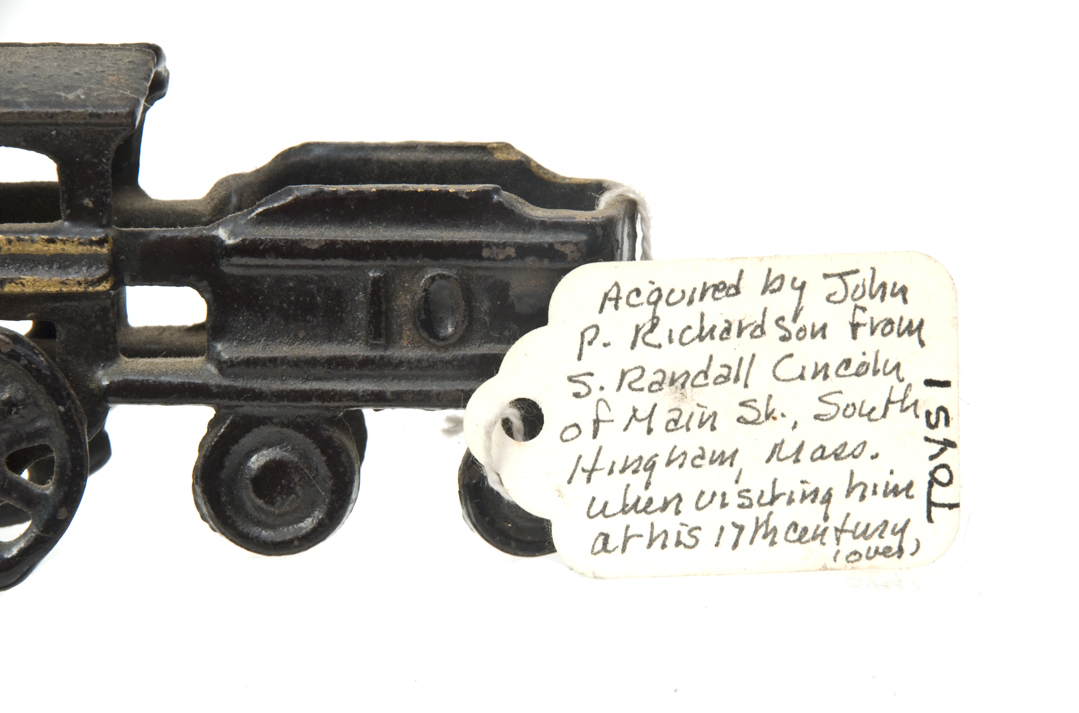 10
Acquired by John
P. Richardson from
S. Randall Lincoln
of Main St., South
Hingham, Mass.
when visiting him
at his 17th century
(over)
TOYS 1